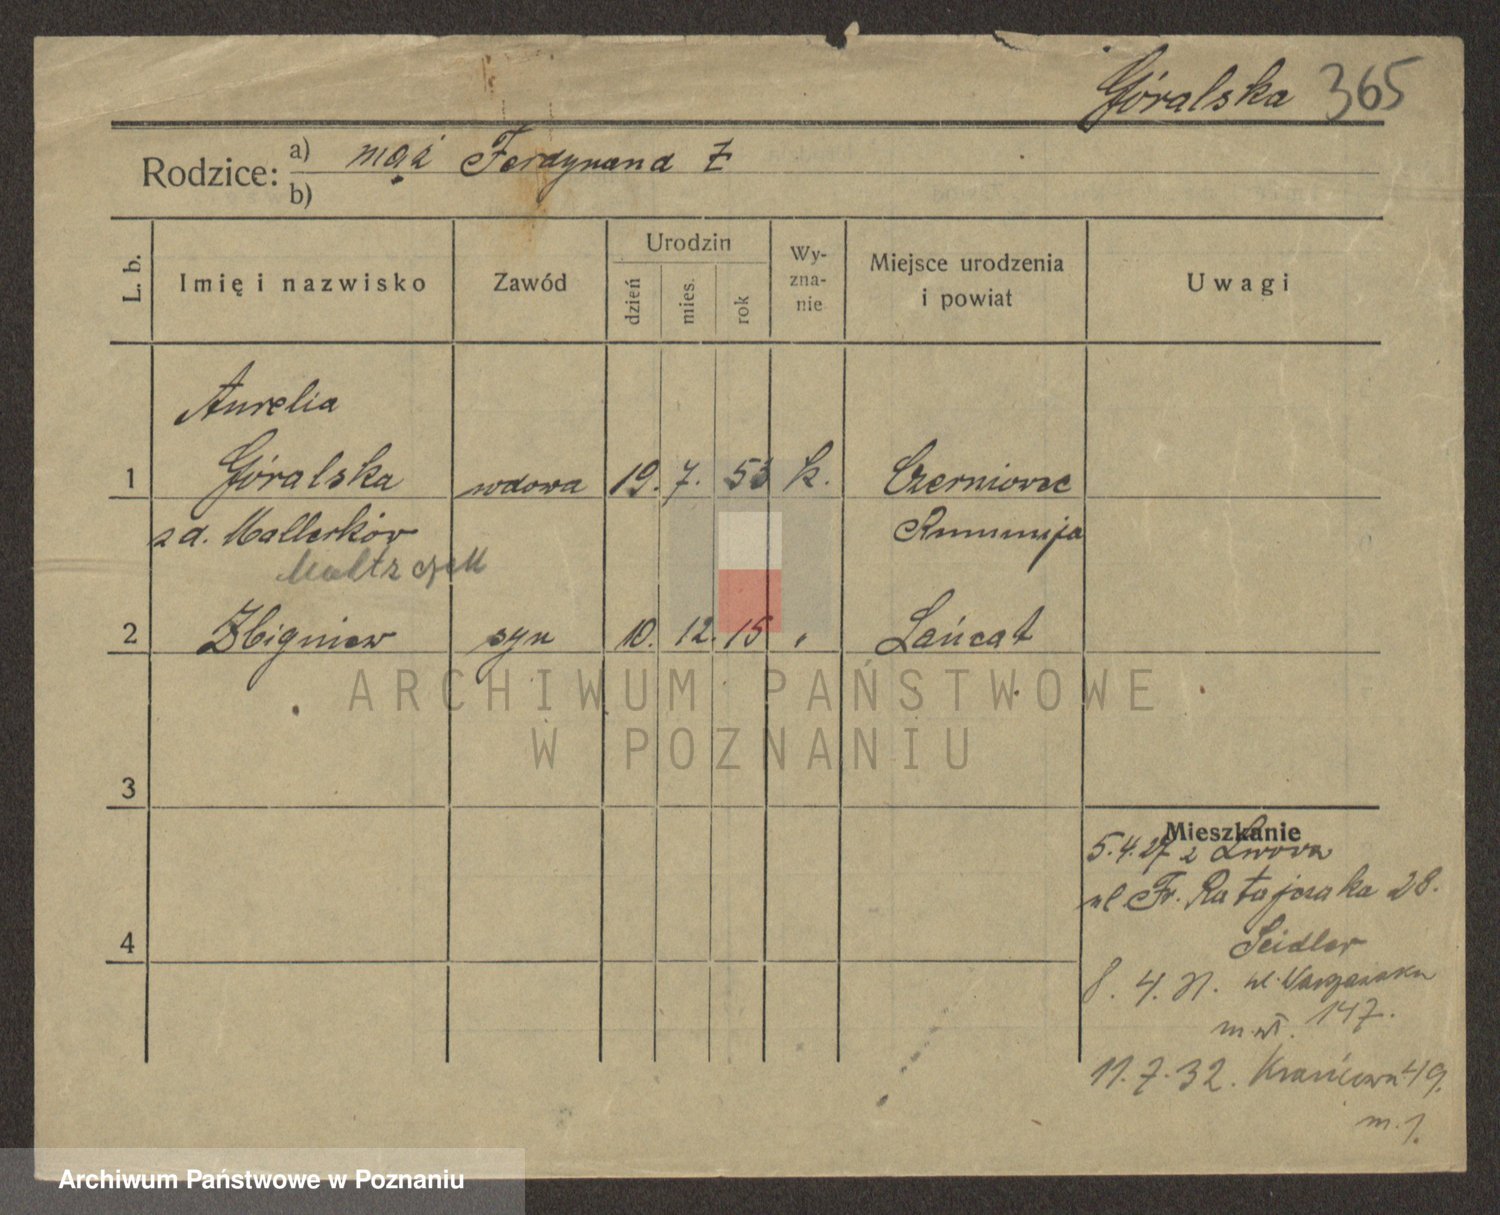 Góralska 365
Rodzice: a) mąż Ferdynand Ż
b)
L. b. Imię i nazwisko Zawód Urodzin dzień mies. rok Wy-zna-nie Miejsce urodzenia i powiat Uwagi
Aurelia
1 Góralska wdowa 19. 7. 53 k. Czerniovec
z d. Mallerków Rumunija
2 Zbigniew syn 10. 12. 15 " Łańcat
3
Mieszkanie
5.4.27 z Lwowa
ul Fr. Ratajczaka 28.
4
Seidler
8. 4. 31. ul.
m. wł. 147.
11.7.32. Krańcowa 49.
m. 1.
ARCHIWUM PAŃSTWOWE
W POZNANIU
Archiwum Państwowe w Poznaniu